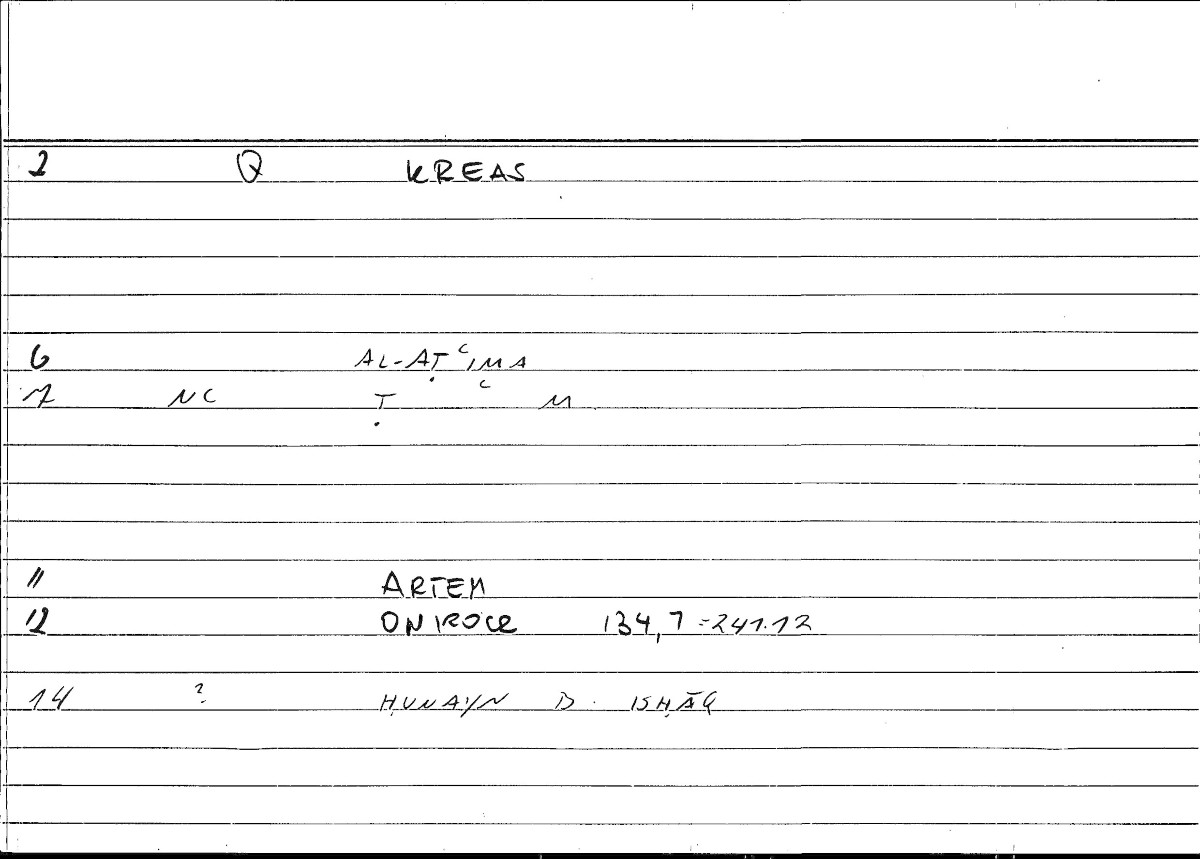 2 Q KREAS
6 AL-AṬʿIMA
7 NC Ṭ ʿ M
11 ARTEM
12 ONIROCR 134,7 = 241.12
14 ? ḤUNAYN B. ISḤĀQ